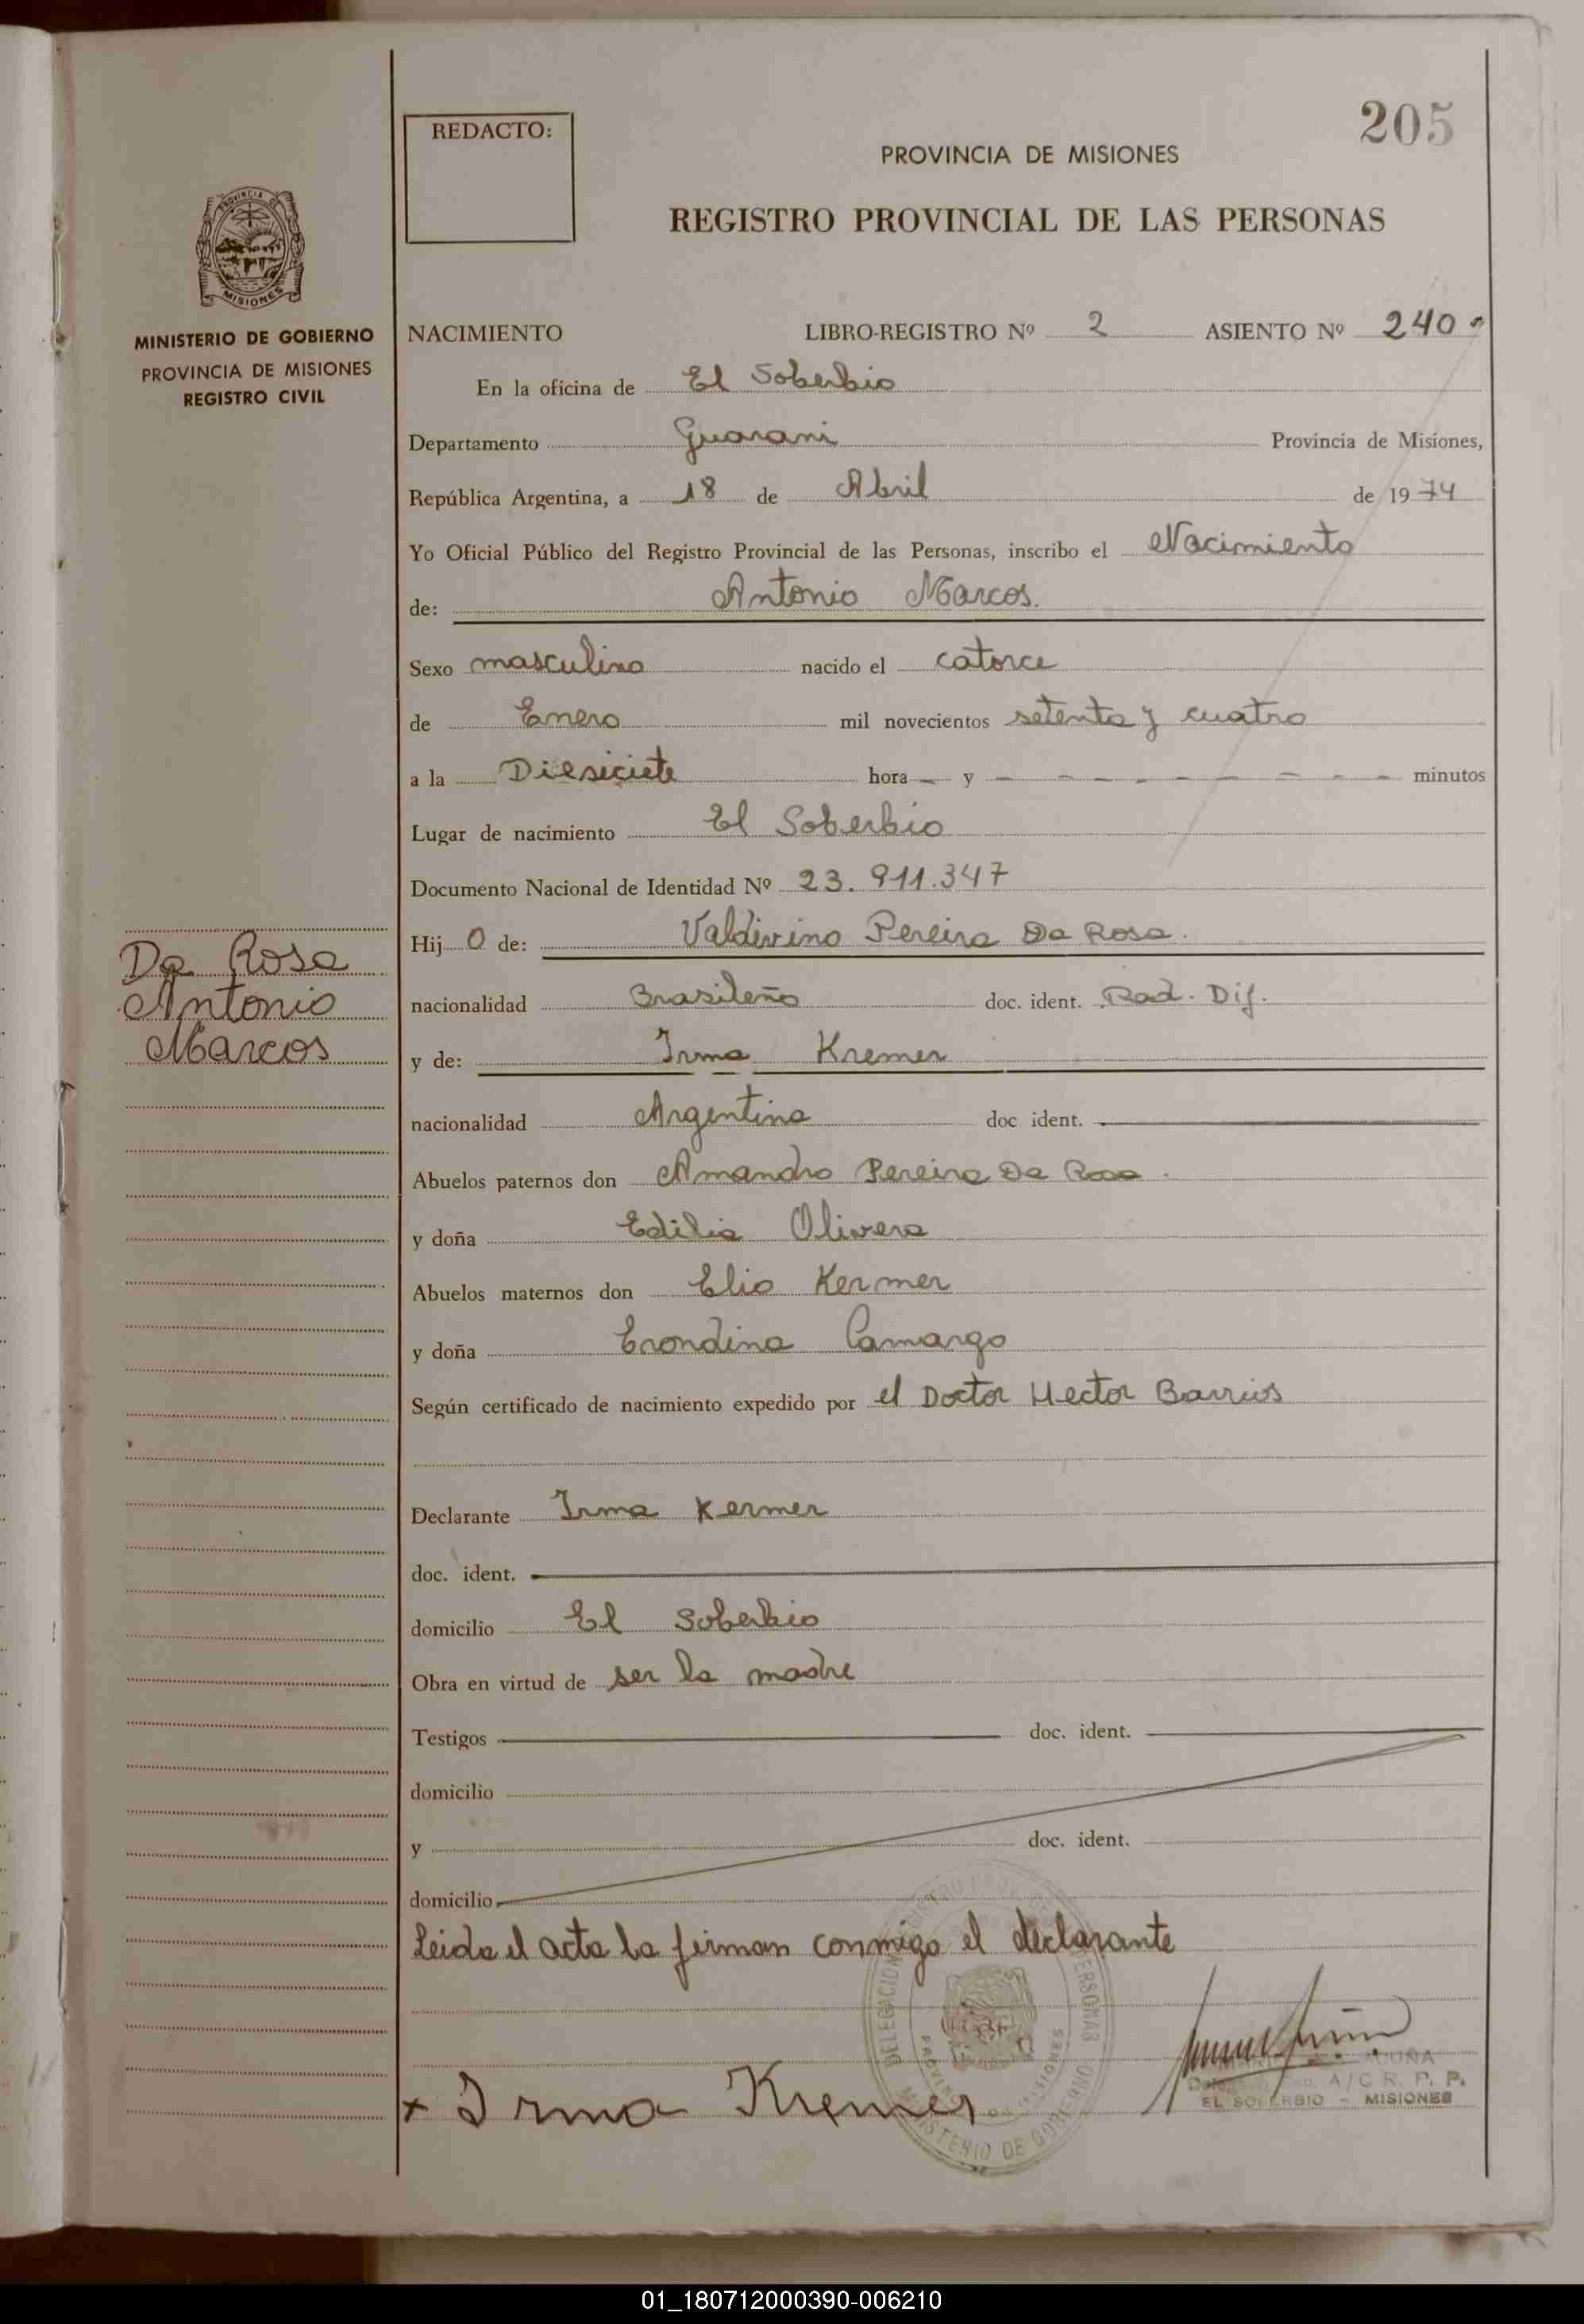 205
REDACTO:
PROVINCIA DE MISIONES
REGISTRO PROVINCIAL DE LAS PERSONAS
PROVINCIA DE
MISIONES
MINISTERIO DE GOBIERNO
PROVINCIA DE MISIONES
REGISTRO CIVIL
NACIMIENTO LIBRO-REGISTRO Nº 2 ASIENTO Nº 240
En la oficina de El Soberbio
Departamento Guarani Provincia de Misiones,
República Argentina, a 18 de Abril de 1974
Yo Oficial Público del Registro Provincial de las Personas, inscribo el Nacimiento
de: Antonio Marcos.
Sexo masculino nacido el catorce
de Enero mil novecientos setenta y cuatro
a la Diesiciete hora — y — — — — — — — — minutos
Lugar de nacimiento El Soberbio
Documento Nacional de Identidad Nº 23.911.347
Hij O de: Valdivino Pereira Da Rosa.
nacionalidad Brasileño doc. ident. Rad. Dif.
y de: Irma Kremer
nacionalidad Argentina doc ident.
Abuelos paternos don Amandro Pereira Da Rosa.
y doña Edilia Olivera
Abuelos maternos don Elio Kermer
y doña Erondina Camargo
Según certificado de nacimiento expedido por el Doctor Hector Barrios
Declarante Irma Kermer
doc. ident.
domicilio El Soberbio
Obra en virtud de ser la madre
Testigos doc. ident.
domicilio
y doc. ident.
domicilio
Leida el acta la firman conmigo el declarante
Da Rosa
Antonio
Marcos
x Irma Kremer
DELEGACION PERSONAS
PROVINCIA MISIONES
MINISTERIO DE GOBIERNO
ACUÑA
A/C R. P. P.
EL SOBERBIO - MISIONES
01_180712000390-006210